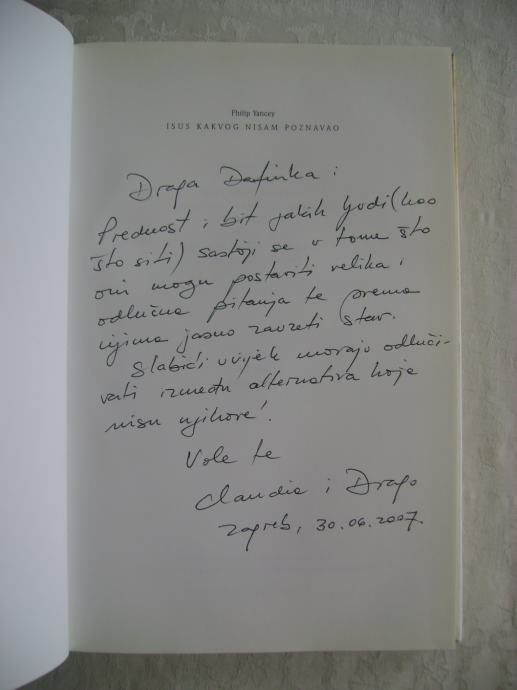 Philip Yancey
ISUS KAKVOG NISAM POZNAVAO
Draga Dafinka!
Prednost i bit jakih ljudi (kao
što si ti) sastoji se u tome što
oni mogu postaviti velika i
odlučna pitanja te prema
njima jasno zauzeti stav.
Slabići uvijek moraju odluči-
vati između alternativa koje
nisu njihove!
Vole te
Claudia i Drago
Zagreb, 30.06.2007.